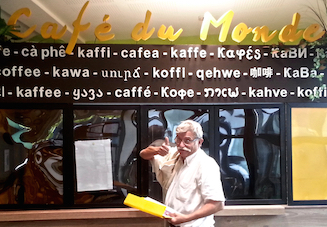 Café du Monde
e - cà phê - kaffi - cafea - kaffe - Καφές - КаВи
coffee - kawa - սուրճ - koffi - qehwe - 咖啡 - КаВа
- kaffee - ყავა - café - Кофе - - kahve - koffi